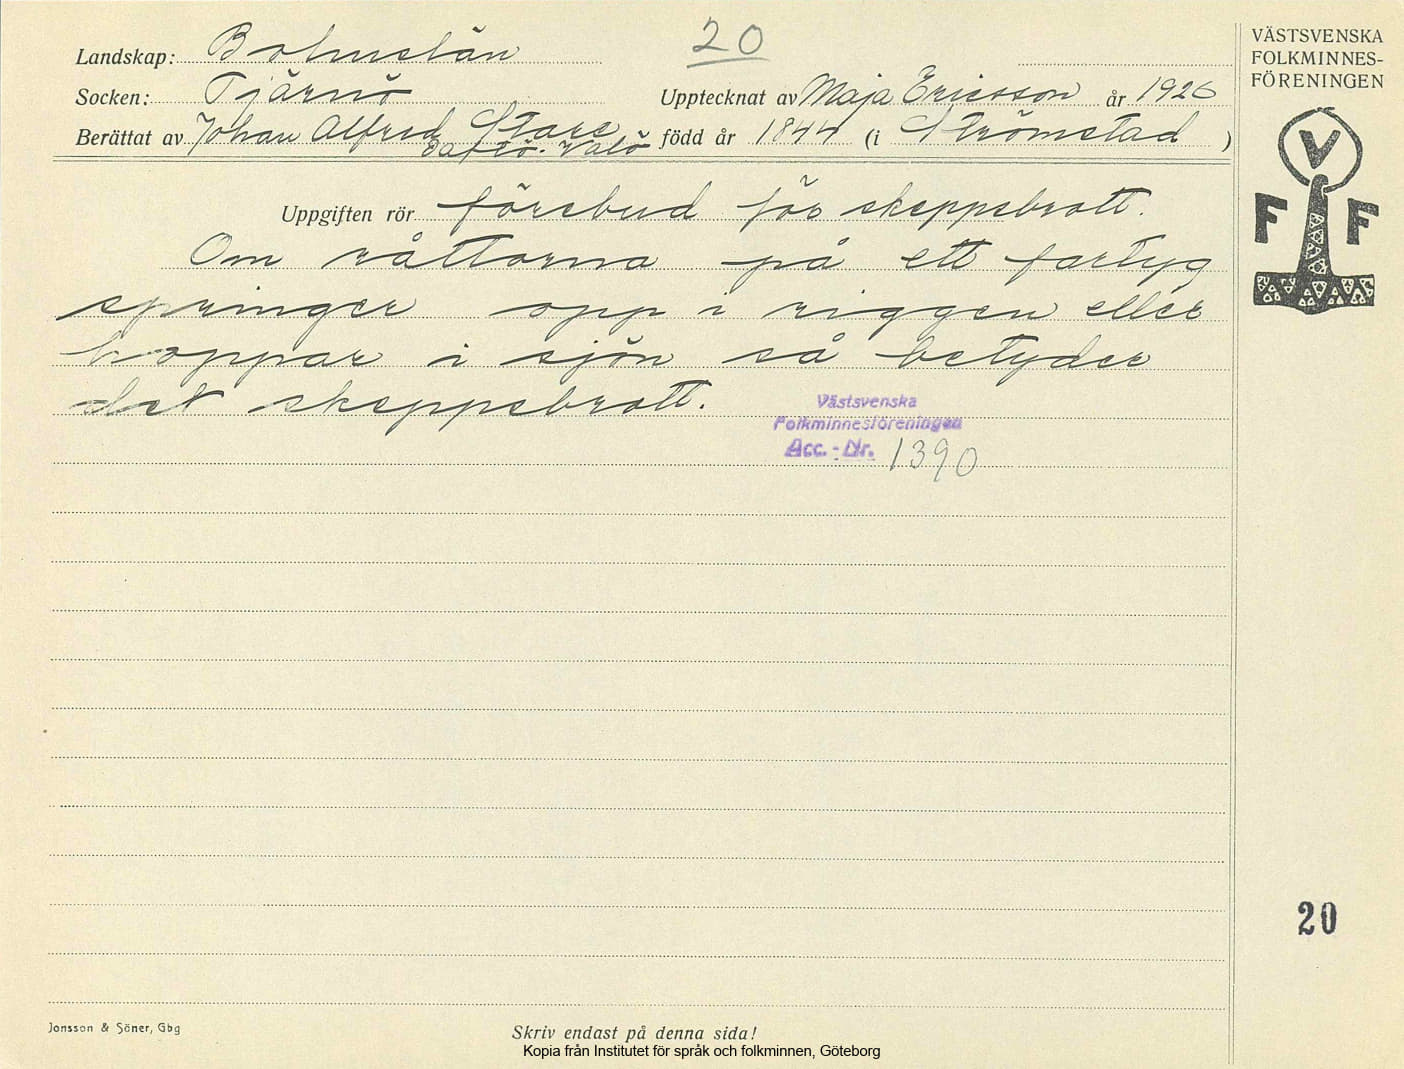 20
Landskap: Bohuslän
Socken: Tjärnö
Upptecknat av Maja Ericsson år 1926
Berättat av Johan Alfred Stare född år 1844 (i Strömstad)
Saltö. Valö
Uppgiften rör förebud för skeppsbrott.
Om råttorna på ett fartyg
springer opp i riggen eller
hoppar i sjön så betyder
det skeppsbrott.
Västsvenska
Folkminnesföreningen
Acc.-Nr. 1390
VÄSTSVENSKA
FOLKMINNES-
FÖRENINGEN
V
F F
20
Jonsson & Söner, Gbg
Skriv endast på denna sida!
Kopia från Institutet för språk och folkminnen, Göteborg